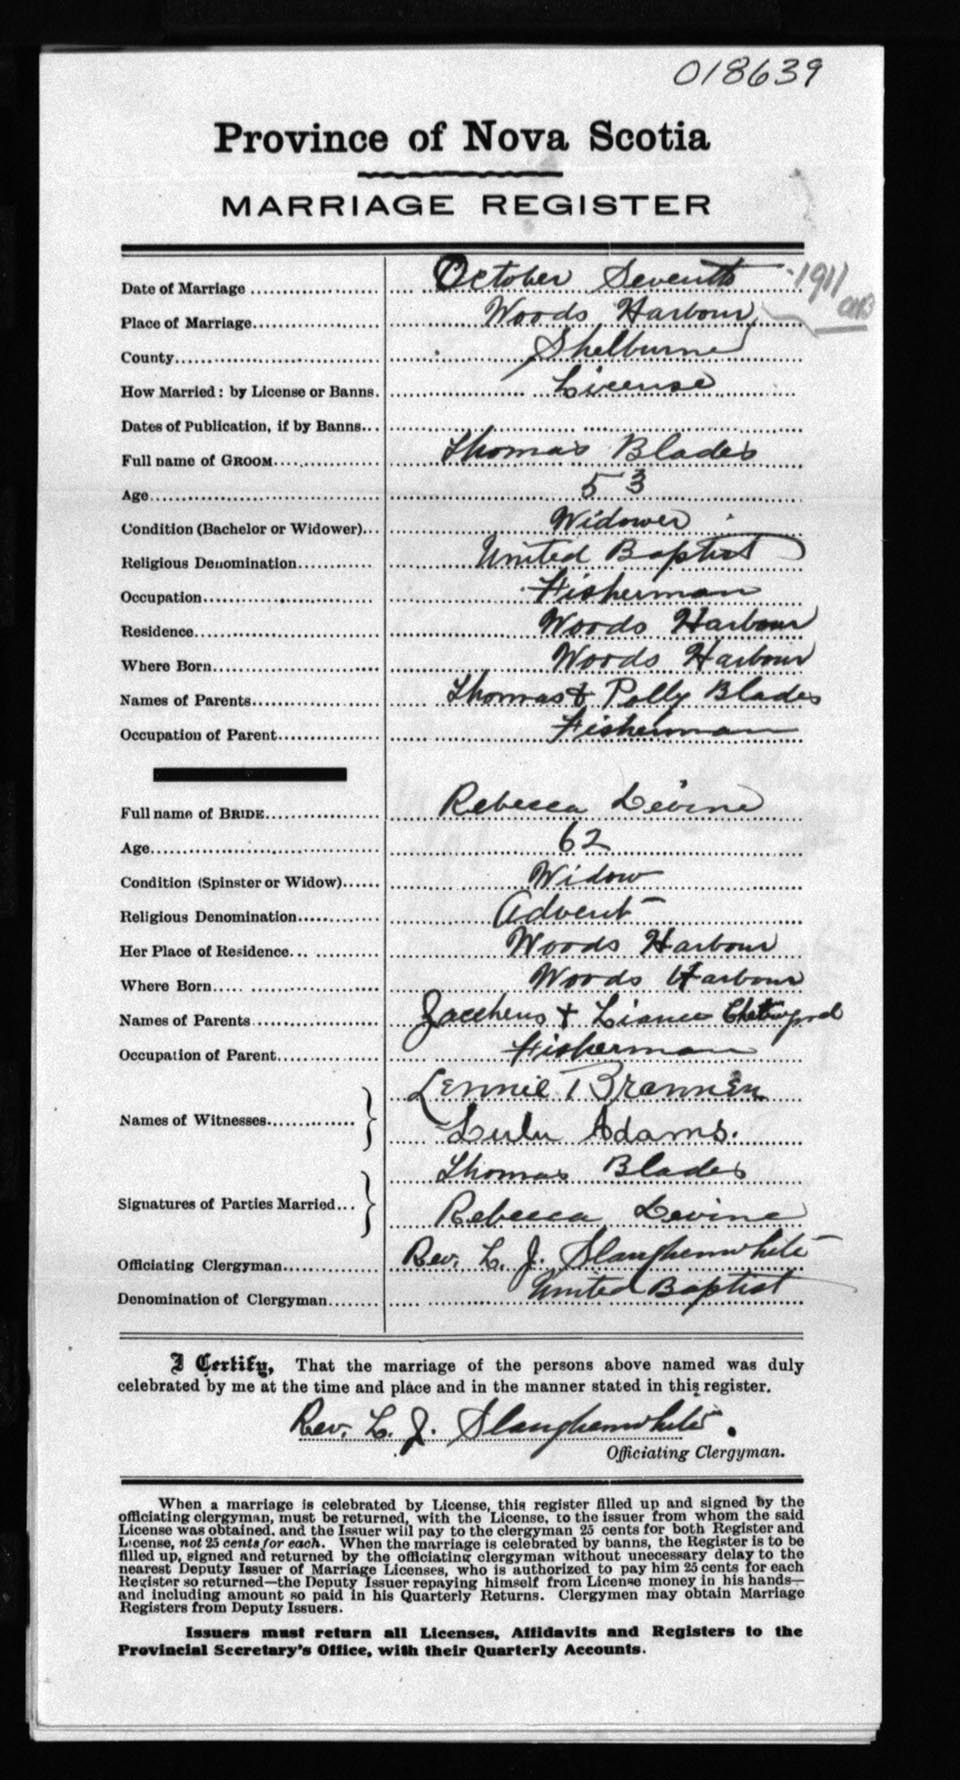 018639
Province of Nova Scotia
MARRIAGE REGISTER
Date of Marriage October Seventh 1911
Place of Marriage Woods Harbour
County Shelburne
How Married: by License or Banns. License
Dates of Publication, if by Banns
Full name of GROOM Thomas Blades
Age 53
Condition (Bachelor or Widower) Widower
Religious Denomination United Baptist
Occupation Fisherman
Residence Woods Harbour
Where Born Woods Harbour
Names of Parents Thomas & Polly Blades
Occupation of Parent Fisherman
Full name of BRIDE Rebecca Levine
Age 62
Condition (Spinster or Widow) Widow
Religious Denomination Advent
Her Place of Residence Woods Harbour
Where Born Woods Harbour
Names of Parents Zaccheus &
Occupation of Parent Fisherman
Lennie Brannen
Names of Witnesses
Lulu Adams.
Thomas Blades
Signatures of Parties Married
Rebecca Levine
Officiating Clergyman Rev. L. J. Slaughenwhite
Denomination of Clergyman United Baptist
I Certify, That the marriage of the persons above named was duly
celebrated by me at the time and place and in the manner stated in this register.
Rev. L. J. Slaughenwhite.
Officiating Clergyman.
When a marriage is celebrated by License, this register filled up and signed by the
officiating clergyman, must be returned, with the License, to the issuer from whom the said
License was obtained, and the Issuer will pay to the clergyman 25 cents for both Register and
License, not 25 cents for each. When the marriage is celebrated by banns, the Register is to be
filled up, signed and returned by the officiating clergyman without unnecessary delay to the
nearest Deputy Issuer of Marriage Licenses, who is authorized to pay him 25 cents for each
Register so returned—the Deputy Issuer repaying himself from License money in his hands—
and including amount so paid in his Quarterly Returns. Clergymen may obtain Marriage
Registers from Deputy Issuers.
Issuers must return all Licenses, Affidavits and Registers to the
Provincial Secretary's Office, with their Quarterly Accounts.